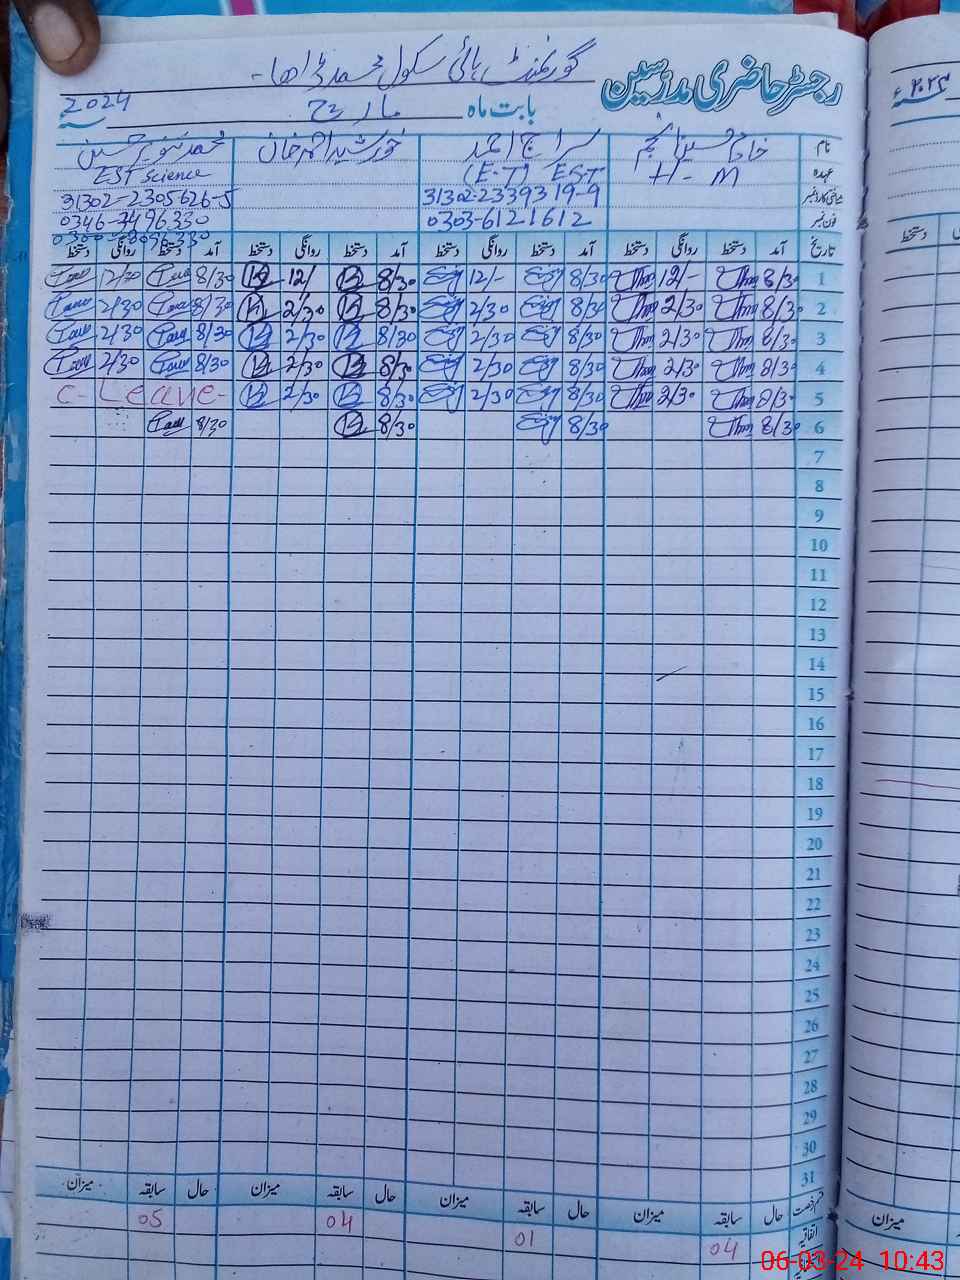 گورنمنٹ ہائی سکول محمد ڈاھا۔
رجسٹر حاضری مدرسین
بابت ماہ مارچ 2024
نام خادم حسین انجم سراج احمد خورشید احمد خان محمد تنویر حسین
عہدہ H-M (E-T) EST EST Science
شناختی کارڈ نمبر 31302-2339319-9 31302-2305626-5
فون نمبر 0303-6121612 0346-7496330
تاریخ آمد دستخط روانگی دستخط آمد دستخط روانگی دستخط آمد دستخط روانگی دستخط آمد دستخط روانگی دستخط
1 8/30 12/- 8/30 12/- 8/30 12/ 8/30 12/30
2 8/30 2/30 8/30 2/30 8/30 2/30 8/30 2/30
3 8/30 2/30 8/30 2/30 8/30 2/30 8/30 2/30
4 8/30 2/30 8/30 2/30 8/30 2/30 8/30 2/30
5 8/30 2/30 8/30 2/30 8/30 2/30 C-Leave-
6 8/30 8/30 8/30 8/30
7
8
9
10
11
12
13
14
15
16
17
18
19
20
21
22
23
24
25
26
27
28
29
30
31
قسم رخصت حال سابقہ میزان حال سابقہ میزان حال سابقہ میزان حال سابقہ میزان
اتفاقیہ 04 01 04 05
میزان
06-03-24 10:43